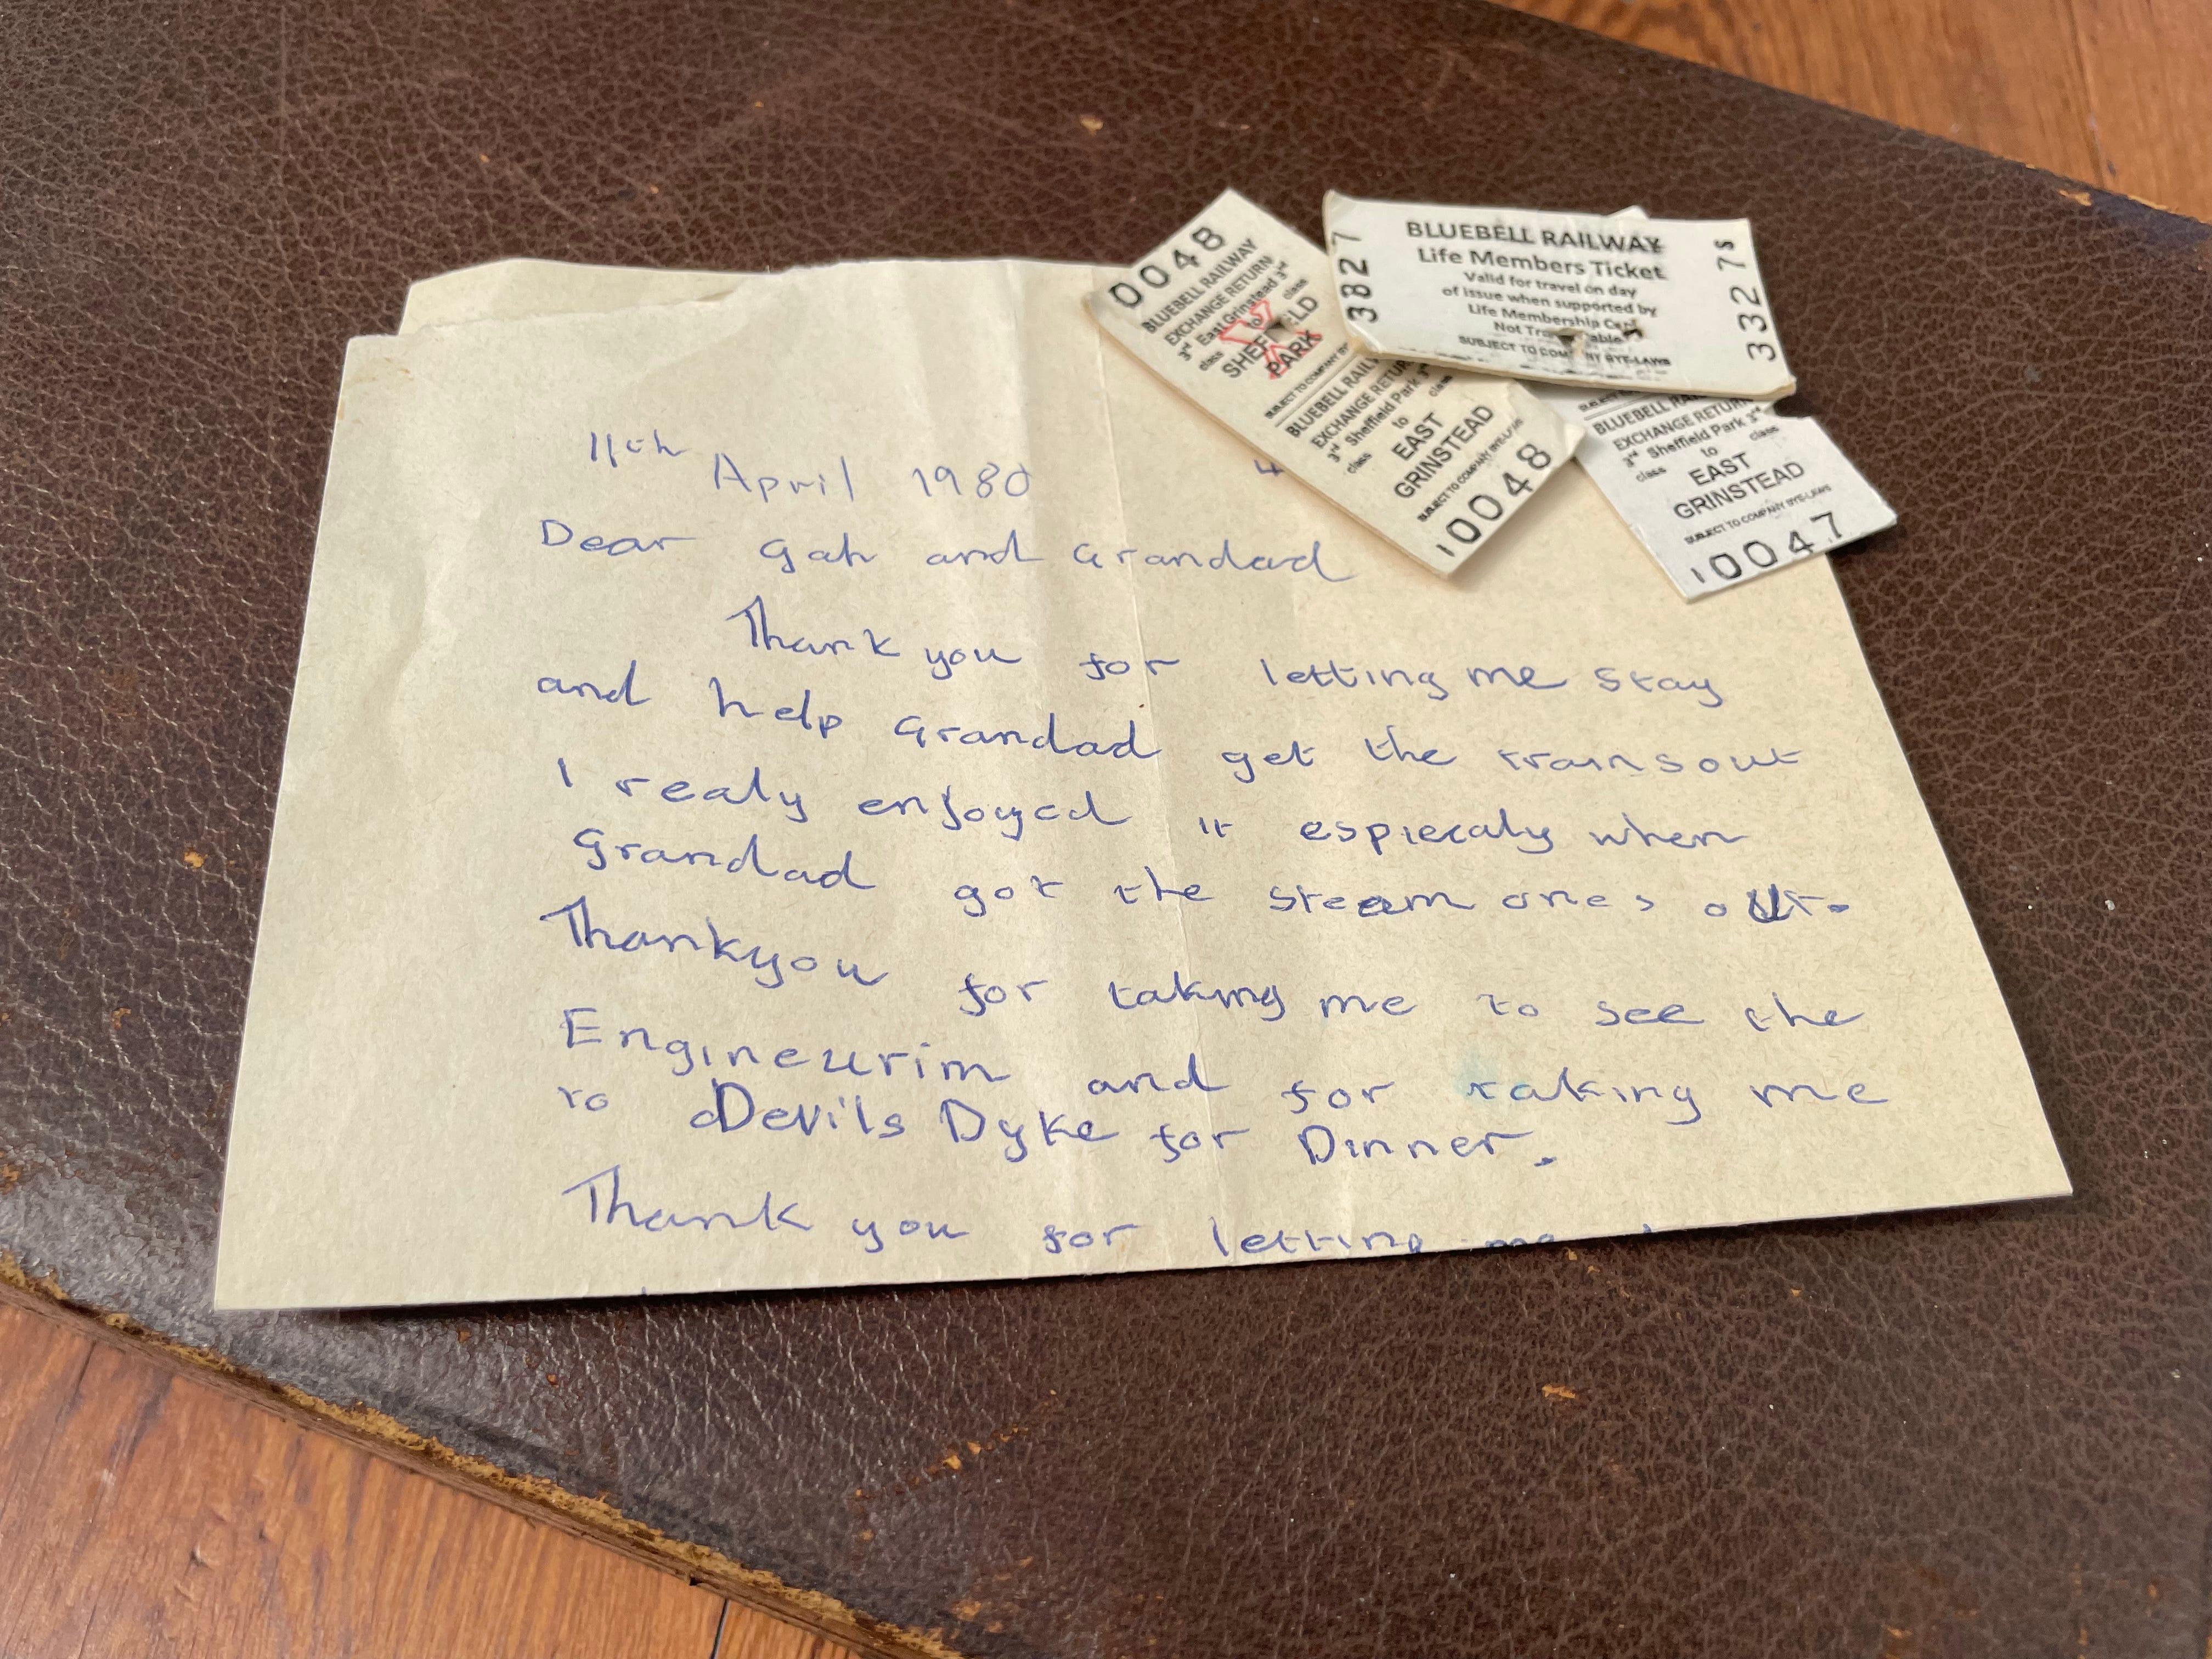 11th April 1980
4
Dear Gah and Grandad
Thank you for letting me stay
and help Grandad get the trains out
I realy enjoyed it espiecaly when
Grandad got the steam ones out.
Thankyou for taking me to see the
Engineurim and for taking me
to Devils Dyke for Dinner.
Thank you for letting me
0048
BLUEBELL RAILWAY
EXCHANGE RETURN
3rd East Grinstead 3rd
class to class
SHEFFIELD
PARK
SUBJECT TO COMPANY BYE-
BLUEBELL RAIL
EXCHANGE RETUR
3rd Sheffield Park 3rd
class to class
EAST
GRINSTEAD
SUBJECT TO COMPANY BYE-LAWS
0048
3827
BLUEBELL RAILWAY
Life Members Ticket
Valid for travel on day
of issue when supported by
Life Membership Card
Not Transferable
SUBJECT TO COMPANY BYE-LAWS
3327S
BLUEBELL RAI
EXCHANGE RETURN
3rd Sheffield Park 3rd
class to class
EAST
GRINSTEAD
SUBJECT TO COMPANY BYE-LAWS
0047